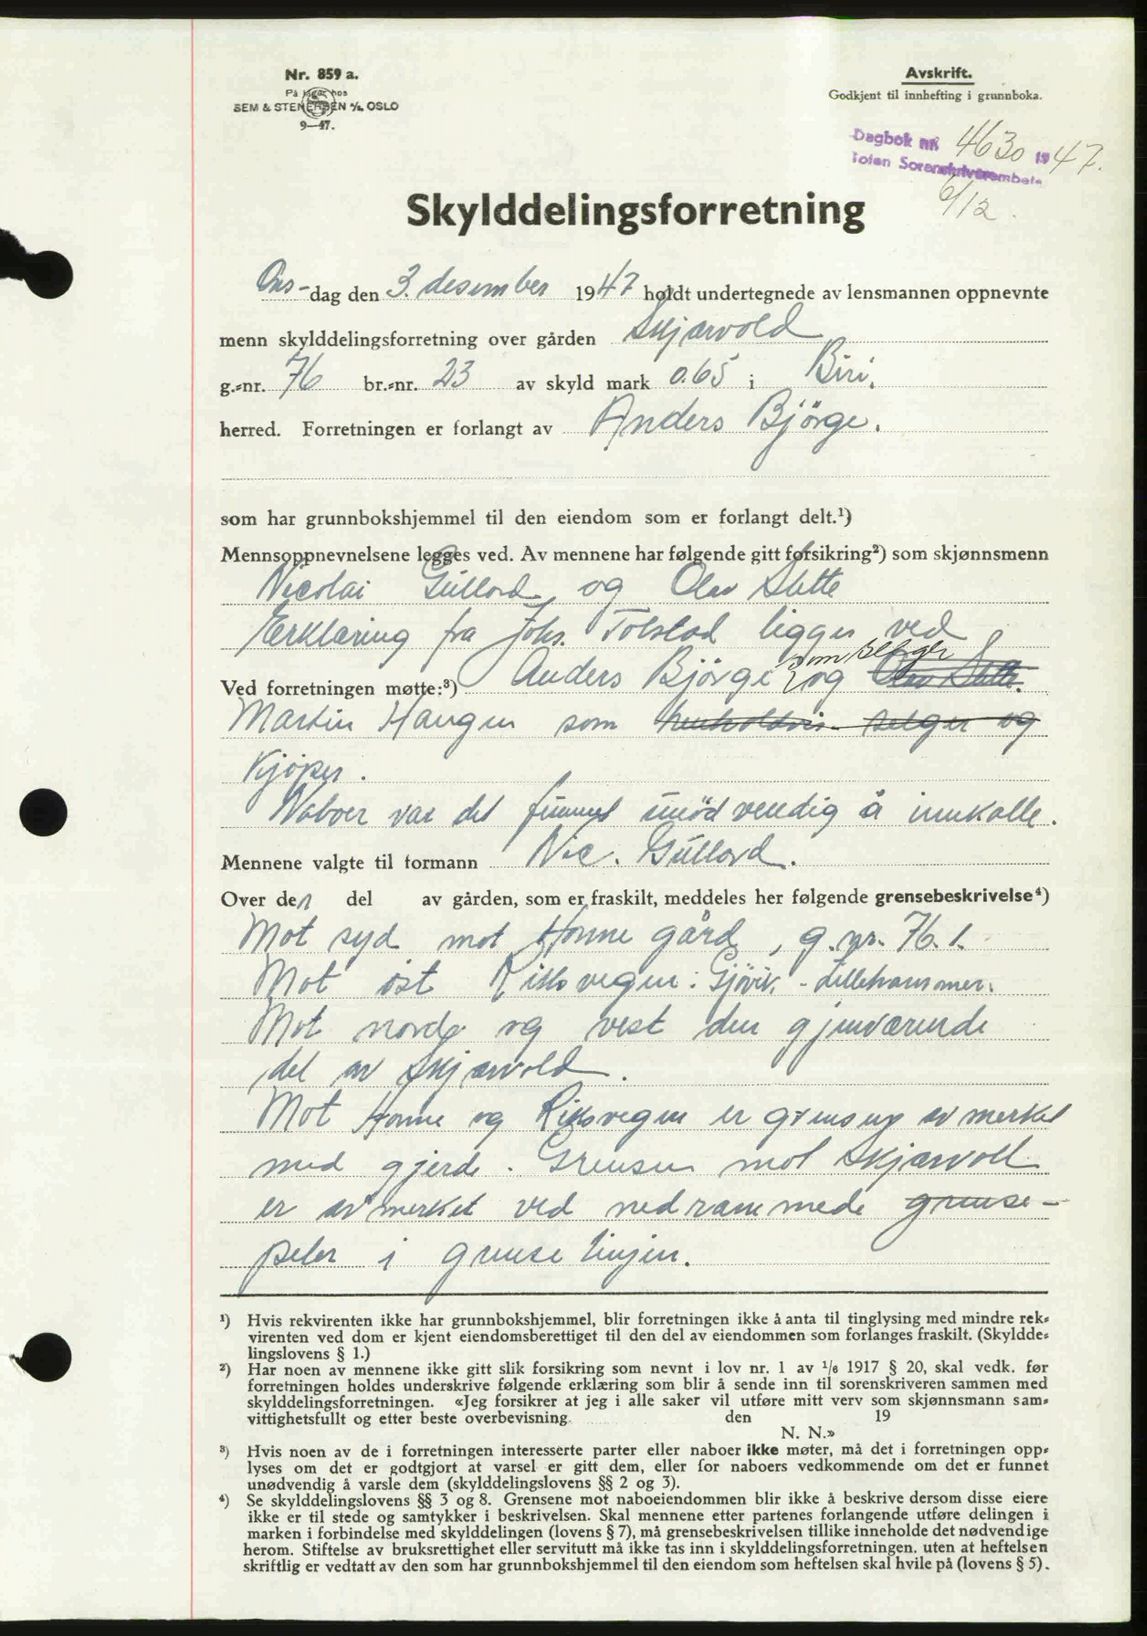 Nr. 859 a.
På lager hos
SEM & STENERSEN A/S, OSLO
9—47.
Avskrift.
Godkjent til innhefting i grunnboka.
Dagbok nr. 4630 1947.
Toten Sorenskriverembete
6/12.
Skylddelingsforretning
Ons- dag den 3. desember 1947 holdt undertegnede av lensmannen oppnevnte
menn skylddelingsforretning over gården Skjærvold
g.-nr. 76 br.-nr. 23 av skyld mark 0.65 i Biri.
herred. Forretningen er forlangt av Anders Bjørge.
som har grunnbokshjemmel til den eiendom som er forlangt delt.¹)
Mennsoppnevnelsene legges ved. Av mennene har følgende gitt forsikring²) som skjønnsmenn
Nicolai Gullord og Olav Slette
Erklæring fra Johs. Tolstad ligger ved
som selger
Ved forretningen møtte:³) Anders Bjørge og Olav Slette.
Martin Haugen som henholdsvis selger og
kjöper.
Naboer var det funnet unödvendig å innkalle.
Mennene valgte til formann Nic. Gullord.
Over den del av gården, som er fraskilt, meddeles her følgende grensebeskrivelse⁴)
Mot syd mot Honne gård, g.nr. 76.1.
Mot öst Riksvegen: Gjövik - Lillehammer.
Mot nord og vest den gjenværende
del av Skjærvold.
Mot Honne og Riksvegen er grensen avmerket
med gjerde. Grensen mot Skjærvoll
er avmerket ved nedrammede grense-
peler i grenselinjen.
¹) Hvis rekvirenten ikke har grunnbokshjemmel, blir forretningen ikke å anta til tinglysing med mindre rek-
virenten ved dom er kjent eiendomsberettiget til den del av eiendommen som forlanges fraskilt. (Skyldde-
lingslovens § 1.)
²) Har noen av mennene ikke gitt slik forsikring som nevnt i lov nr. 1 av 1/6 1917 § 20, skal vedk. før
forretningen holdes underskrive følgende erklæring som blir å sende inn til sorenskriveren sammen med
skylddelingsforretningen. «Jeg forsikrer at jeg i alle saker vil utføre mitt verv som skjønnsmann sam-
vittighetsfullt og etter beste overbevisning. den 19
N. N.»
³) Hvis noen av de i forretningen interesserte parter eller naboer ikke møter, må det i forretningen opp-
lyses om det er godtgjort at varsel er gitt dem, eller for naboers vedkommende om det er funnet
unødvendig å varsle dem (skylddelingslovens §§ 2 og 3).
⁴) Se skylddelingslovens §§ 3 og 8. Grensene mot naboeiendommen blir ikke å beskrive dersom disse eiere
ikke er til stede og samtykker i beskrivelsen. Skal mennene etter partenes forlangende utføre delingen i
marken i forbindelse med skylddelingen (lovens § 7), må grensebeskrivelsen tillike inneholde det nødvendige
herom. Stiftelse av bruksrettighet eller servitutt må ikke tas inn i skylddelingsforretningen. uten at heftelsen
skriftlig er vedtatt av den som har grunnbokshjemmel til den eiendom som heftelsen skal hvile på (lovens § 5).